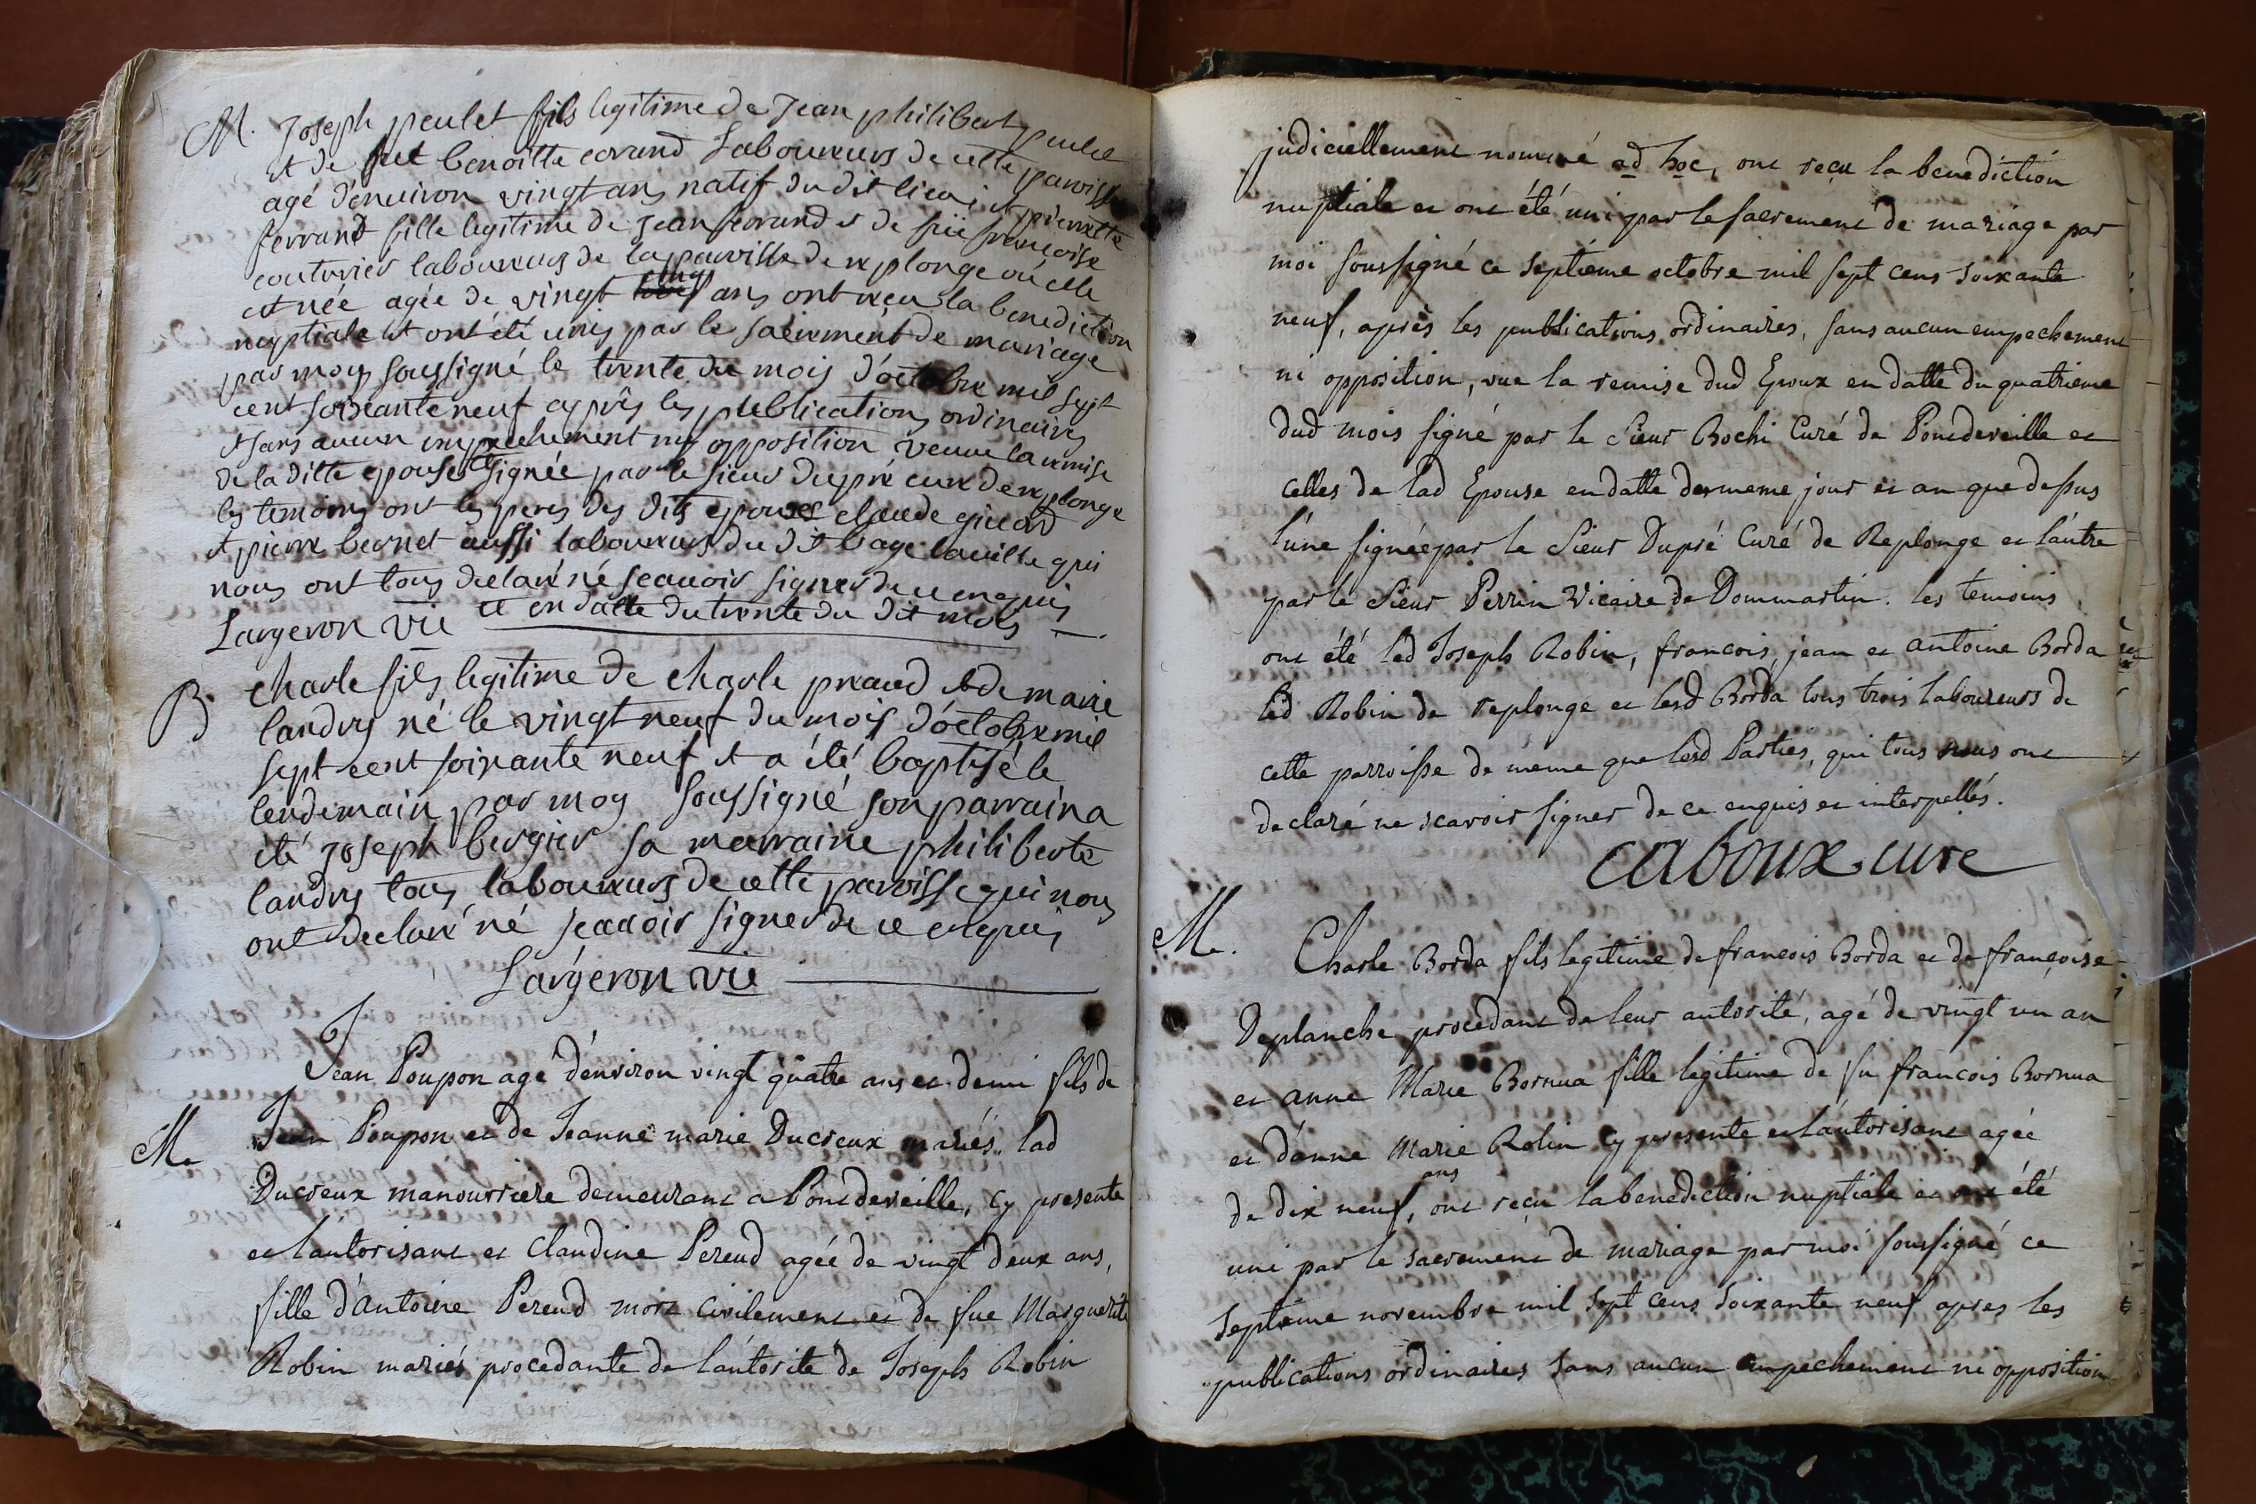 M. Joseph peulet fils legitime de Jean philibert peulet
et de feu benoitte corand Laboureurs de cette paroisse
agé d'environ vingt ans natif du dit lieu et pierrette
ferrand fille legitime de Jean ferrand et de füe francoise
couturier laboureurs de la paroisse de replonge où elle
est née agée de vingt cinq ans ont reçu la benediction
nuptiale et ont été unis par le sacrement de mariage
par moy soussigné le trente du mois d'octobre mil sept
cent soixante neuf après les publications ordinaires
et sans aucun empechement ny opposition veuue la remise
de la ditte epouse signée par le sieur dupré curé de replonge
les temoins ont les peres des dits epoux claude
et pierre bernet aussi laboureurs du dit bagé laville qui
nous ont tous declaré né scauoir signer de ce enquis
Largeron vic et en datte du trente du dit mois
B. Charle fils legitime de charle preaud et de marie
landry né le vingt neuf du mois d'octobre mil
sept cent soixante neuf et a été baptisé le
lendemain par moy soussigné son parrain a
été joseph bergier sa marraine philiberte
landry tous laboureurs de cette paroisse qui nous
ont declaré né scauoir signer de ce enquis
Largeron vic
Jean Poupon agé d'environ vingt quatre ans et demi fils de
M. Jean Poupon et de Jeanne marie Ducreux mariés. lad
Ducreux manouvriere demeurant a Pontdeveille, cy presente
et l'autorisant et Claudine Pereud agée de vingt deux ans,
fille d'antoine Pereud mort civilement et de fue Marguerite
Robin mariés procedante de l'autorite de Joseph Robin
judiciellement nommé ad hoc, ont reçu la benediction
nuptiale et ont été uni par le sacrement de mariage par
moi soussigné ce septieme octobre mil sept cens soixante
neuf, après les publications ordinaires, sans aucun empechement
ni opposition, vue la remise dud Epoux en datte du quatrieme
dud mois signé par le Sieur Bochi Curé de Pontdeveille et
celles de lad Epouse en datte des meme jour et an que dessus
l'une signée par le Sieur Dupré Curé de Replonge et l'autre
par le Sieur Perrin Vicaire de Dommartin. les temoins
ont été led Joseph Robin, francois, jean et antoine Borda
led Robin de replonge et lesd Borda tous trois laboureurs de
cette parroisse de meme que lesd Parties, qui tous nous ont
declaré ne scavoir signer de ce enquis et interpellés.
caboux cure
M. Charle Borda fils legitime de francois Borda et de françoise
Deplanche procedant de leur autorité, agé de vingt un an
et anne Marie Bornua fille legitime de fu francois Bornua
et d'anne Marie Robin cy presente et l'autorisant agée
de dix neuf ans, ont reçu la benediction nuptiale et ont été
uni par le sacrement de mariage par moi soussigné ce
septieme novembre mil sept cens soixante neuf apres les
publications ordinaires sans aucun empechement ni opposition